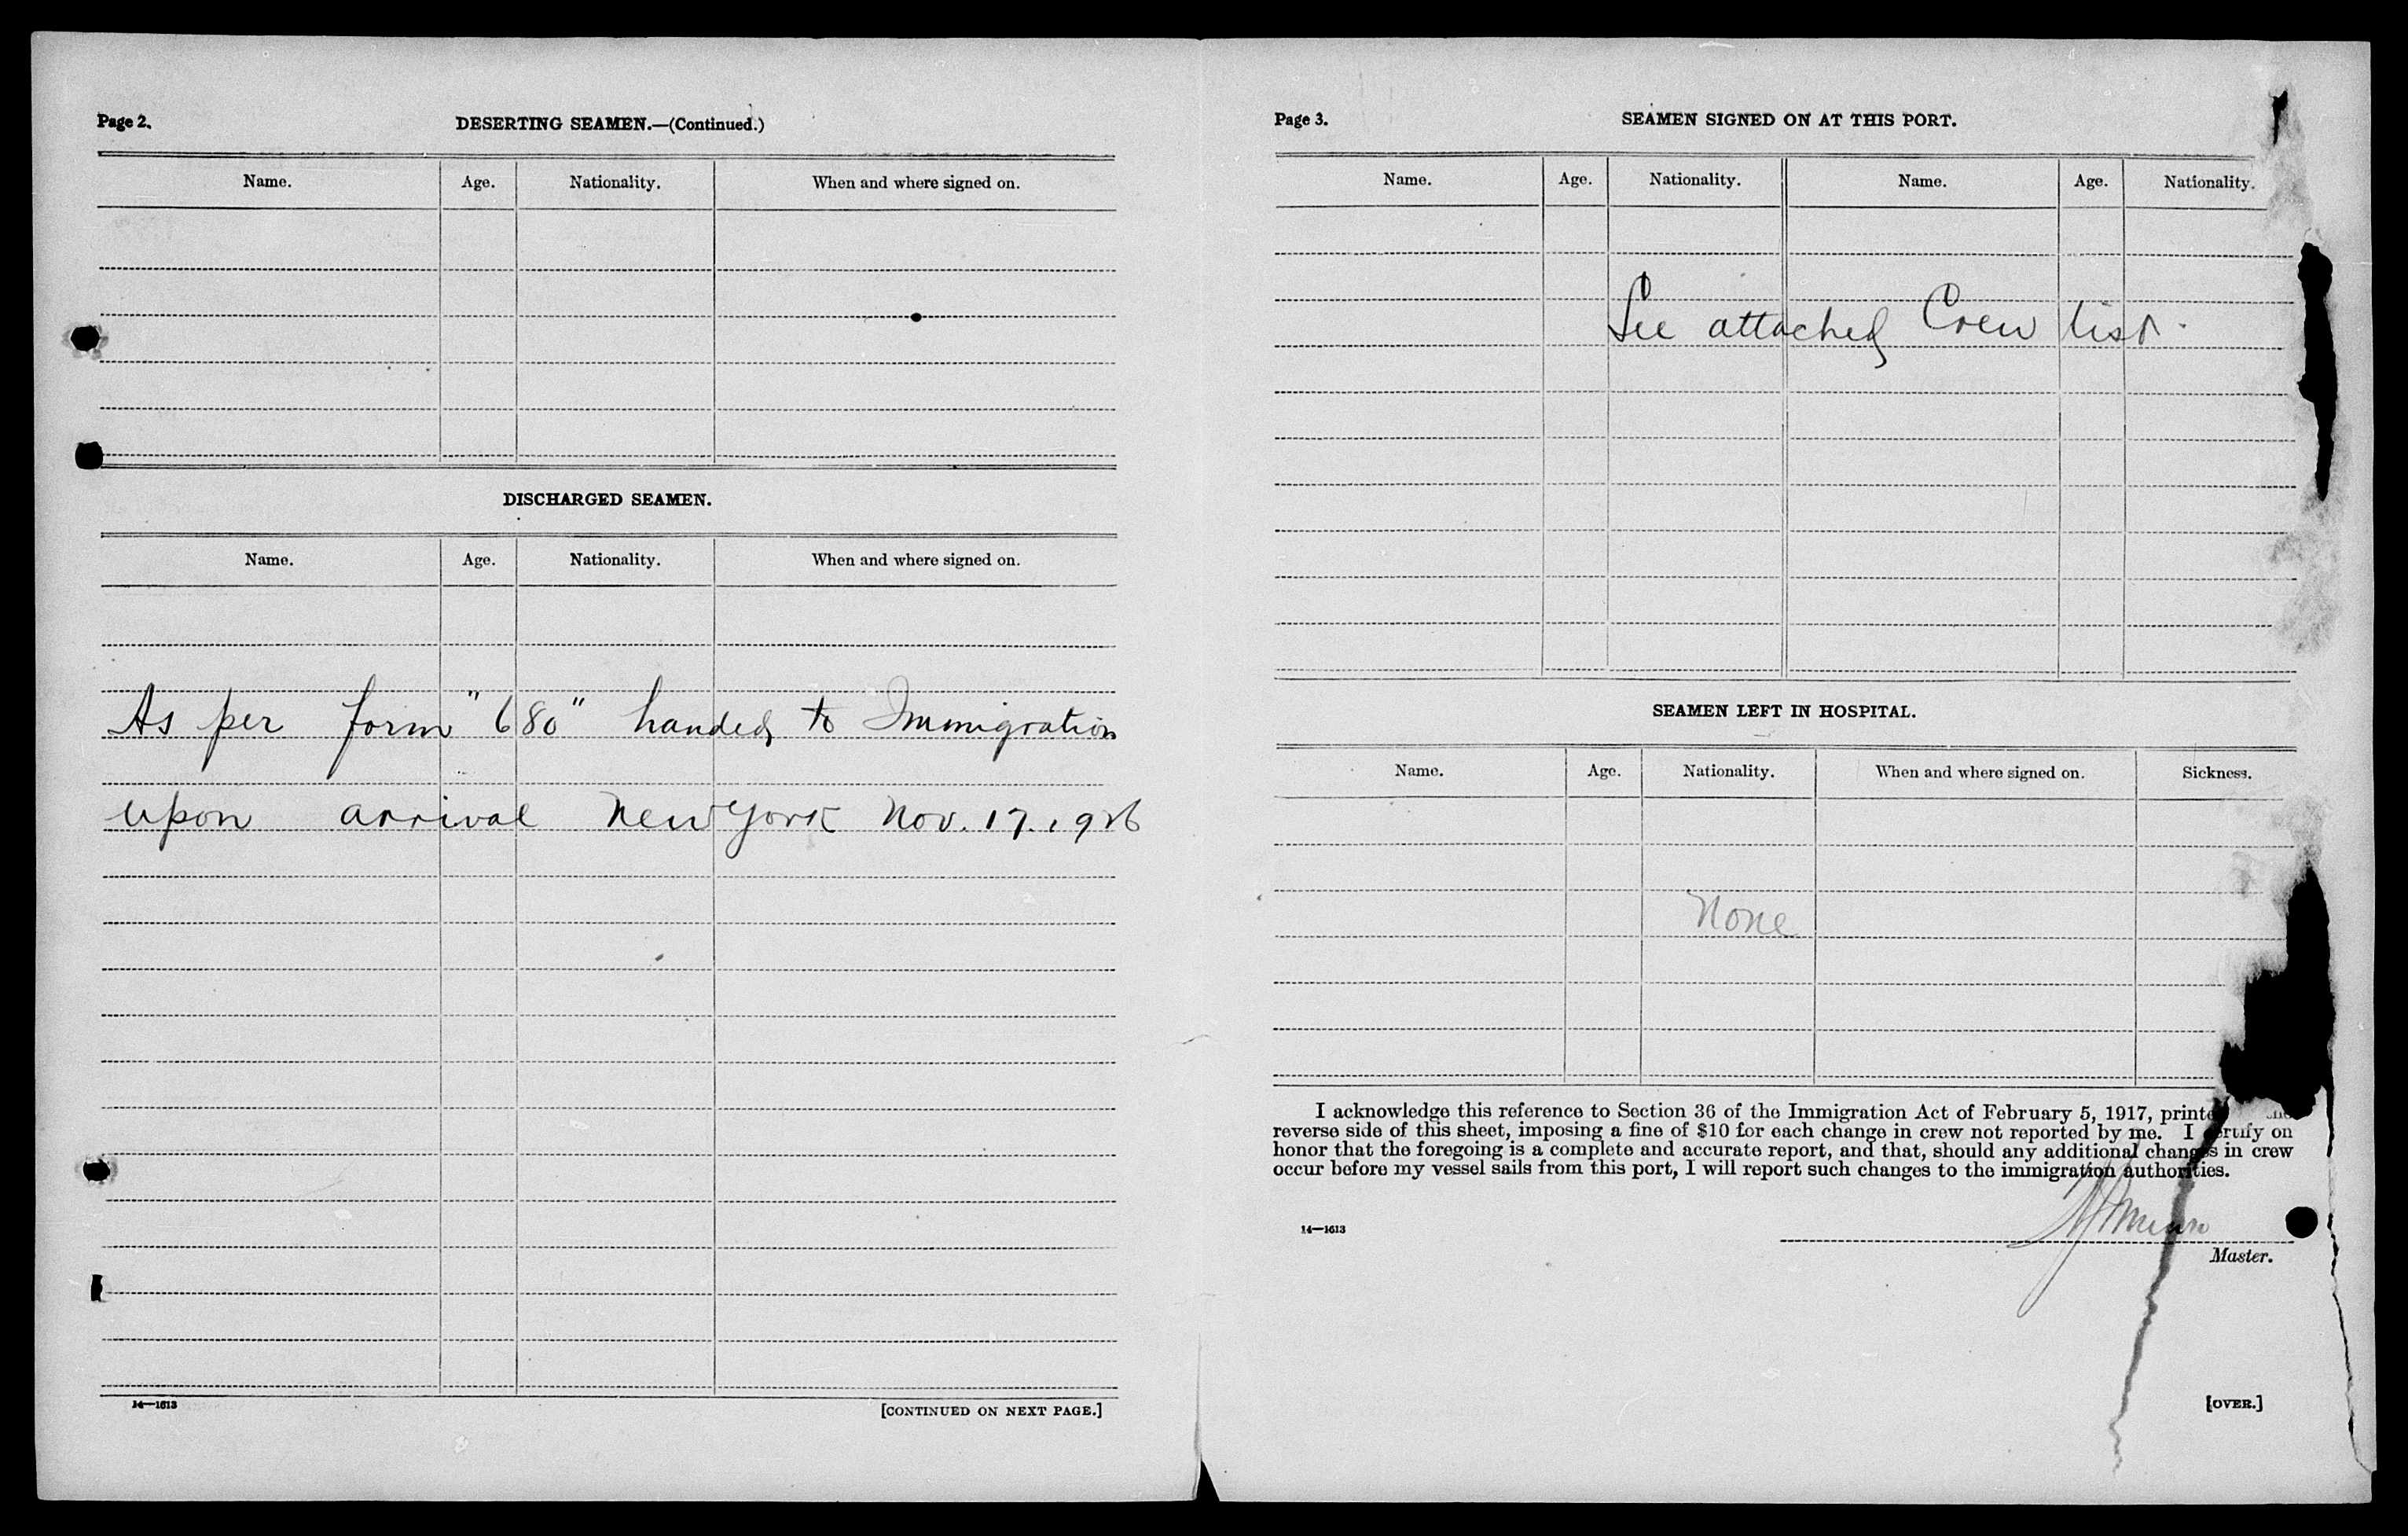 Page 2.
DESERTING SEAMEN.—(Continued.)
Name. Age. Nationality. When and where signed on.
DISCHARGED SEAMEN.
Name. Age. Nationality. When and where signed on.
As per form "680" handed to Immigration
upon arrival New York Nov. 17. 1926
14—1613
[CONTINUED ON NEXT PAGE.]
Page 3.
SEAMEN SIGNED ON AT THIS PORT.
Name. Age. Nationality. Name. Age. Nationality.
See attached Crew list.
SEAMEN LEFT IN HOSPITAL.
Name. Age. Nationality. When and where signed on. Sickness.
None
I acknowledge this reference to Section 36 of the Immigration Act of February 5, 1917,
reverse side of this sheet, imposing a fine of $10 for each change in crew not reported by me. I certify on
honor that the foregoing is a complete and accurate report, and that, should any additional changes in crew
occur before my vessel sails from this port, I will report such changes to the immigration authorities.
14—1613
Master.
[OVER.]